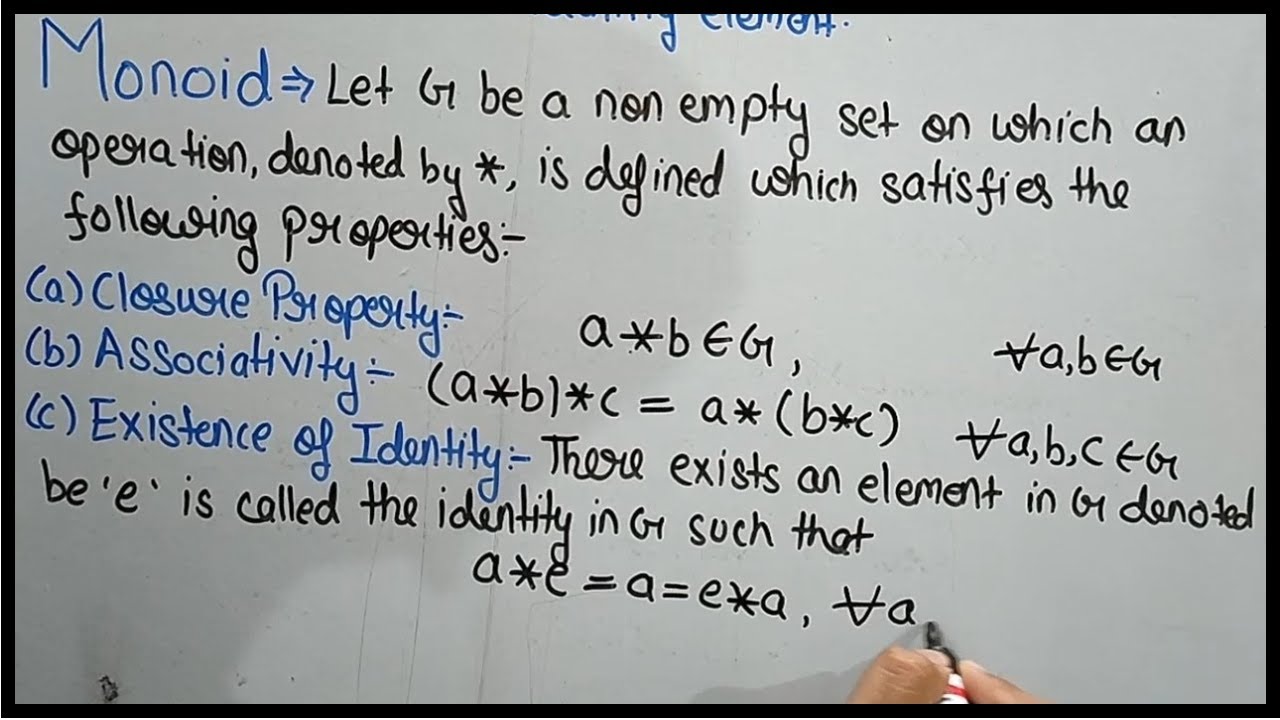 element.
Monoid ⇒ Let G be a non empty set on which an
operation, denoted by *, is defined which satisfies the
following properties:-
(a) Closure Property:- a*b∈G, ∀a,b∈G
(b) Associativity:- (a*b)*c = a*(b*c) ∀a,b,c∈G
(c) Existence of Identity:- There exists an element in G denoted
be 'e' is called the identity in G such that
a*e = a = e*a, ∀a